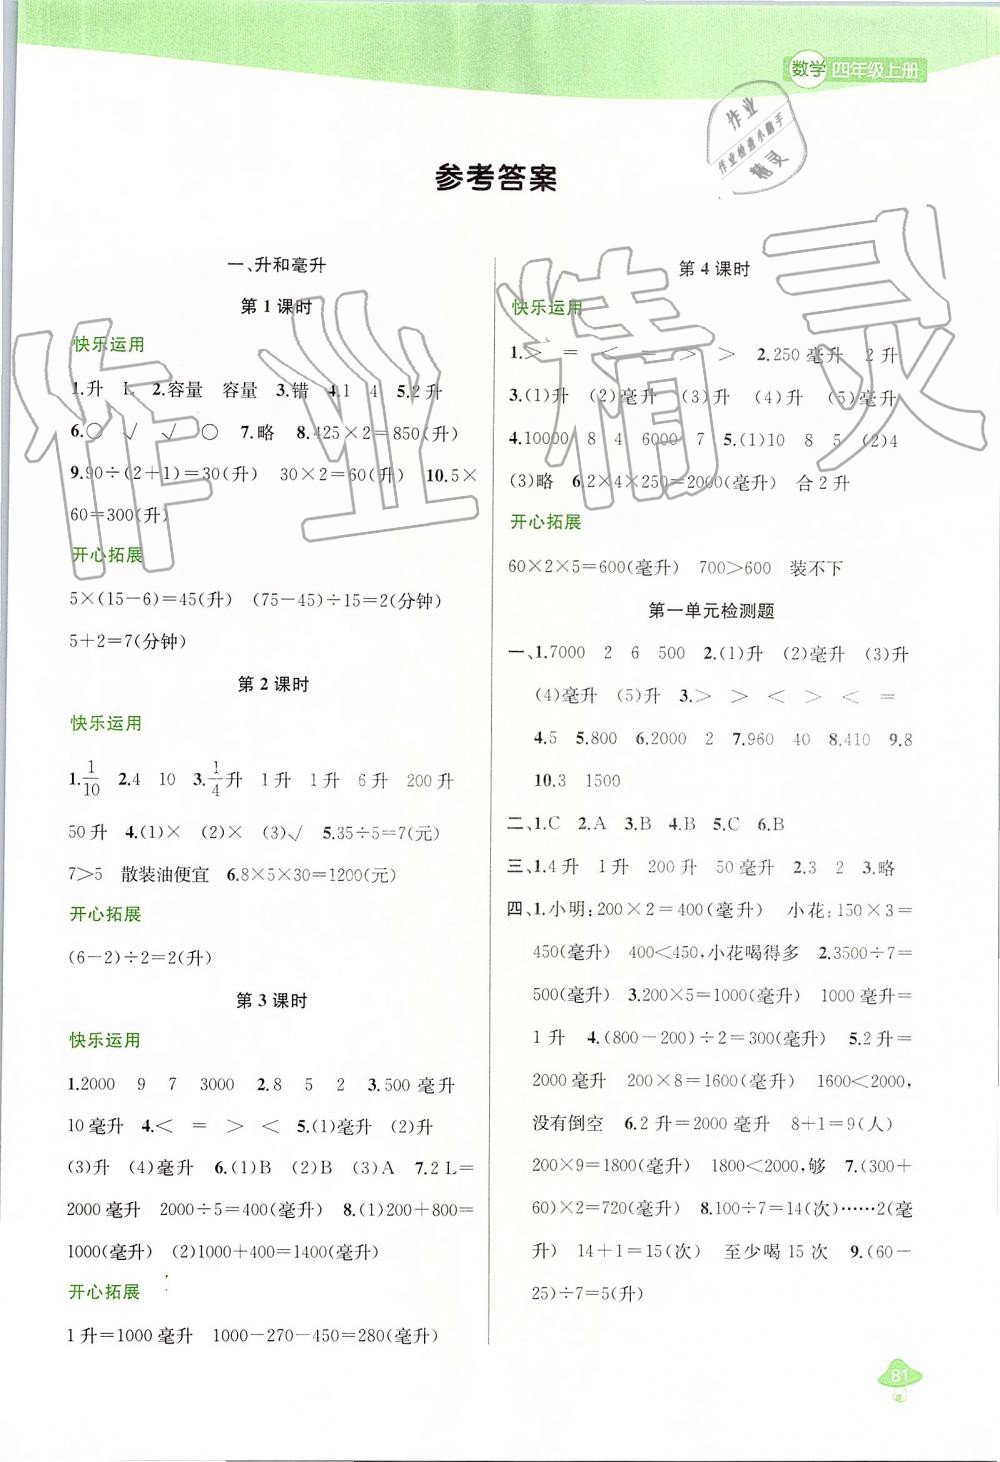 数学 四年级上册
作业
作业检查小助手
精灵
参考答案
一、升和毫升
第 1 课时
快乐运用
1.升 L 2.容量 容量 3.错 4.1 4 5.2升
6.○ √ √ ○ 7.略 8.425×2=850(升)
9.90÷(2+1)=30(升) 30×2=60(升) 10.5×
60=300(升)
开心拓展
5×(15-6)=45(升) (75-45)÷15=2(分钟)
5+2=7(分钟)
第 2 课时
快乐运用
1.1/10 2.4 10 3.1/4升 1升 1升 6升 200升
50升 4.(1)× (2)× (3)√ 5.35÷5=7(元)
7>5 散装油便宜 6.8×5×30=1200(元)
开心拓展
(6-2)÷2=2(升)
第 3 课时
快乐运用
1.2000 9 7 3000 2.8 5 2 3.500毫升
10毫升 4.< = > < 5.(1)毫升 (2)升
(3)升 (4)毫升 6.(1)B (2)B (3)A 7.2 L=
2000毫升 2000÷5=400(毫升) 8.(1)200+800=
1000(毫升) (2)1000+400=1400(毫升)
开心拓展
1升=1000毫升 1000-270-450=280(毫升)
第 4 课时
快乐运用
1.> = < = > > 2.250毫升 2升
3.(1)升 (2)毫升 (3)升 (4)升 (5)毫升
4.10000 8 4 6000 7 5.(1)10 8 5 (2)4
(3)略 6.2×4×250=2000(毫升) 合2升
开心拓展
60×2×5=600(毫升) 700>600 装不下
第一单元检测题
一、1.7000 2 6 500 2.(1)升 (2)毫升 (3)升
(4)毫升 (5)升 3.> > < > < =
4.5 5.800 6.2000 2 7.960 40 8.410 9.8
10.3 1500
二、1.C 2.A 3.B 4.B 5.C 6.B
三、1.4升 1升 200升 50毫升 2.3 2 3.略
四、1.小明:200×2=400(毫升) 小花:150×3=
450(毫升) 400<450,小花喝得多 2.3500÷7=
500(毫升) 3.200×5=1000(毫升) 1000毫升=
1升 4.(800-200)÷2=300(毫升) 5.2升=
2000毫升 200×8=1600(毫升) 1600<2000,
没有倒空 6.2升=2000毫升 8+1=9(人)
200×9=1800(毫升) 1800<2000,够 7.(300+
60)×2=720(毫升) 8.100÷7=14(次)……2(毫
升) 14+1=15(次) 至少喝15次 9.(60-
25)÷7=5(升)
81
作业精灵